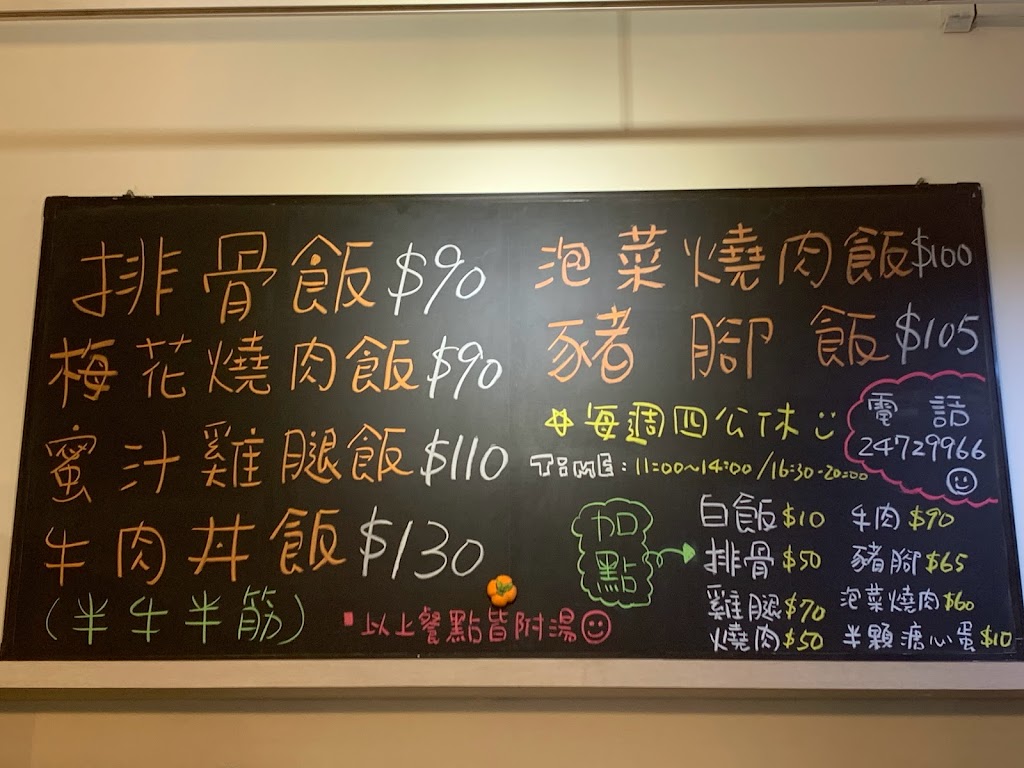 排骨飯$90
梅花燒肉飯$90
蜜汁雞腿飯$110
牛肉丼飯$130
(半牛半筋)
▪以上餐點皆附湯☺
泡菜燒肉飯$100
豬腳飯$105
☆每週四公休
TIME:11:00~14:00/16:30-20:00
電話
24729966
加點
白飯$10
排骨$50
雞腿$70
燒肉$50
牛肉$90
豬腳$65
泡菜燒肉$60
半顆溏心蛋$10